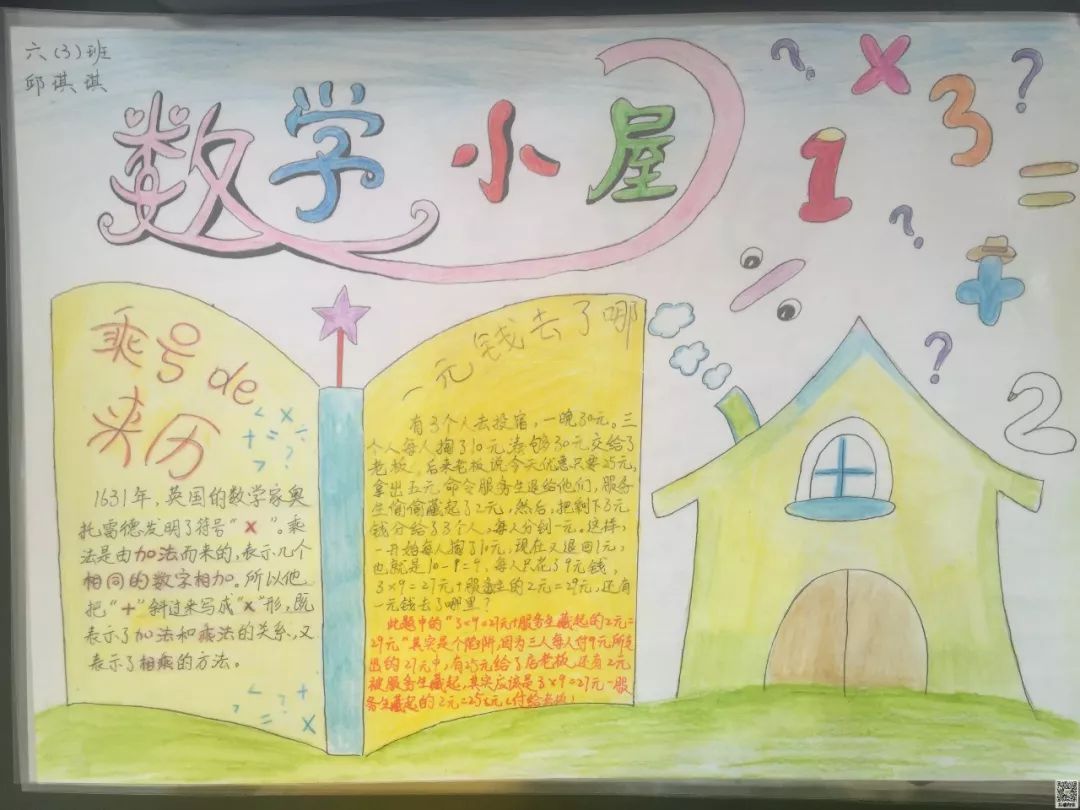 六(3)班
邱琪琪
数学小屋
乘号de
来历
1631年，英国的数学家奥
托雷德发明了符号“×”。乘
法是由加法而来的，表示几个
相同的数字相加。所以他
把“+”斜过来写成“×”形，既
表示了加法和乘法的关系，又
表示了相乘的方法。
一元钱去了哪
有3个人去投宿，一晚30元。三
个人每人掏了10元凑够30元交给了
老板。后来老板说今天优惠只要25元，
拿出五元命令服务生退给他们，服务
生偷偷藏起了2元，然后，把剩下3元
钱分给了3个人，每人分到一元。这样，
一开始每人掏了10元，现在又退回1元，
也就是10-1=9，每人只花了9元钱，
3×9=27元+服务生的2元=29元，还有
一元钱去了哪里？
此题中的“3×9=27元+服务生藏起的2元=
29元”其实是个陷阱，因为三人每人付9元，所支
出的27元中，有25元给了店老板，还有2元
被服务生藏起，其实应该是3×9=27元-服
务生藏起的2元=25元(付给老板)
? × 3 ?
1 =
?
% +
?
2